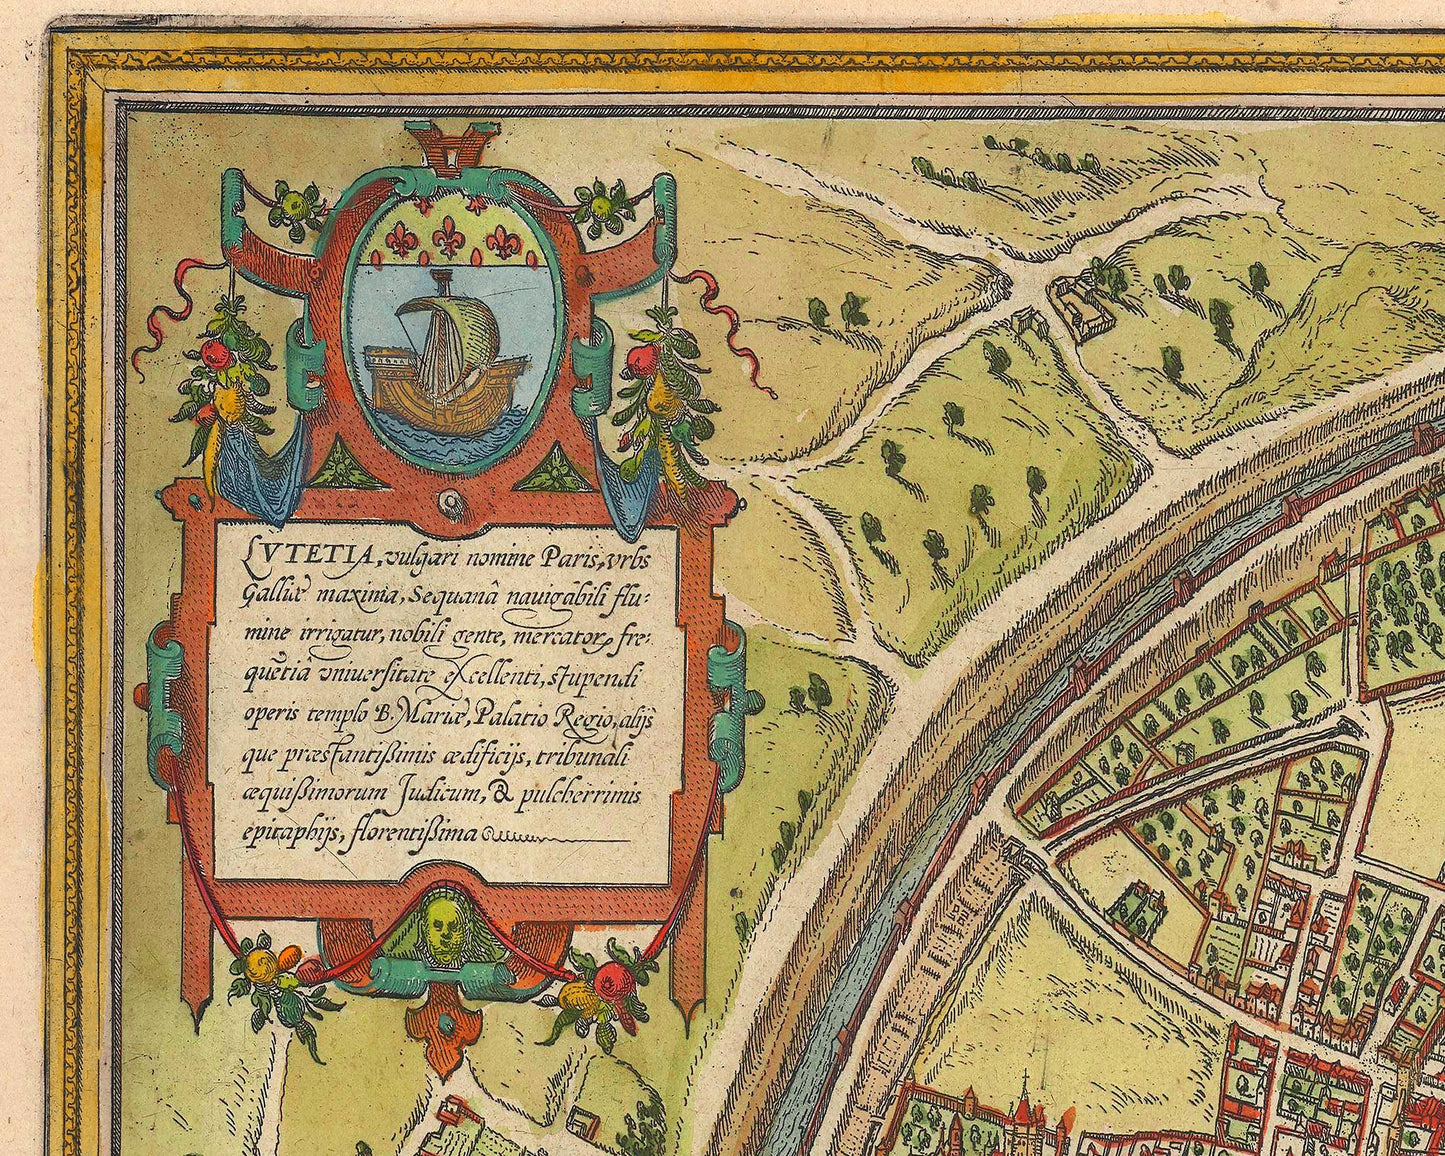 LVTETIA, vulgari nomine Paris, vrbs
Galliæ maxima, Sequanâ nauigabili flu-
mine irrigatur, nobili gente, mercatorꝫ fre-
quētiâ vniuersitate excellenti, stupendi
operis templo B. Mariæ, Palatio Regio, alijs
que præstantißimis ædificijs, tribunali
æquißimorum Judicum, & pulcherrimis
epitaphijs, florentißima